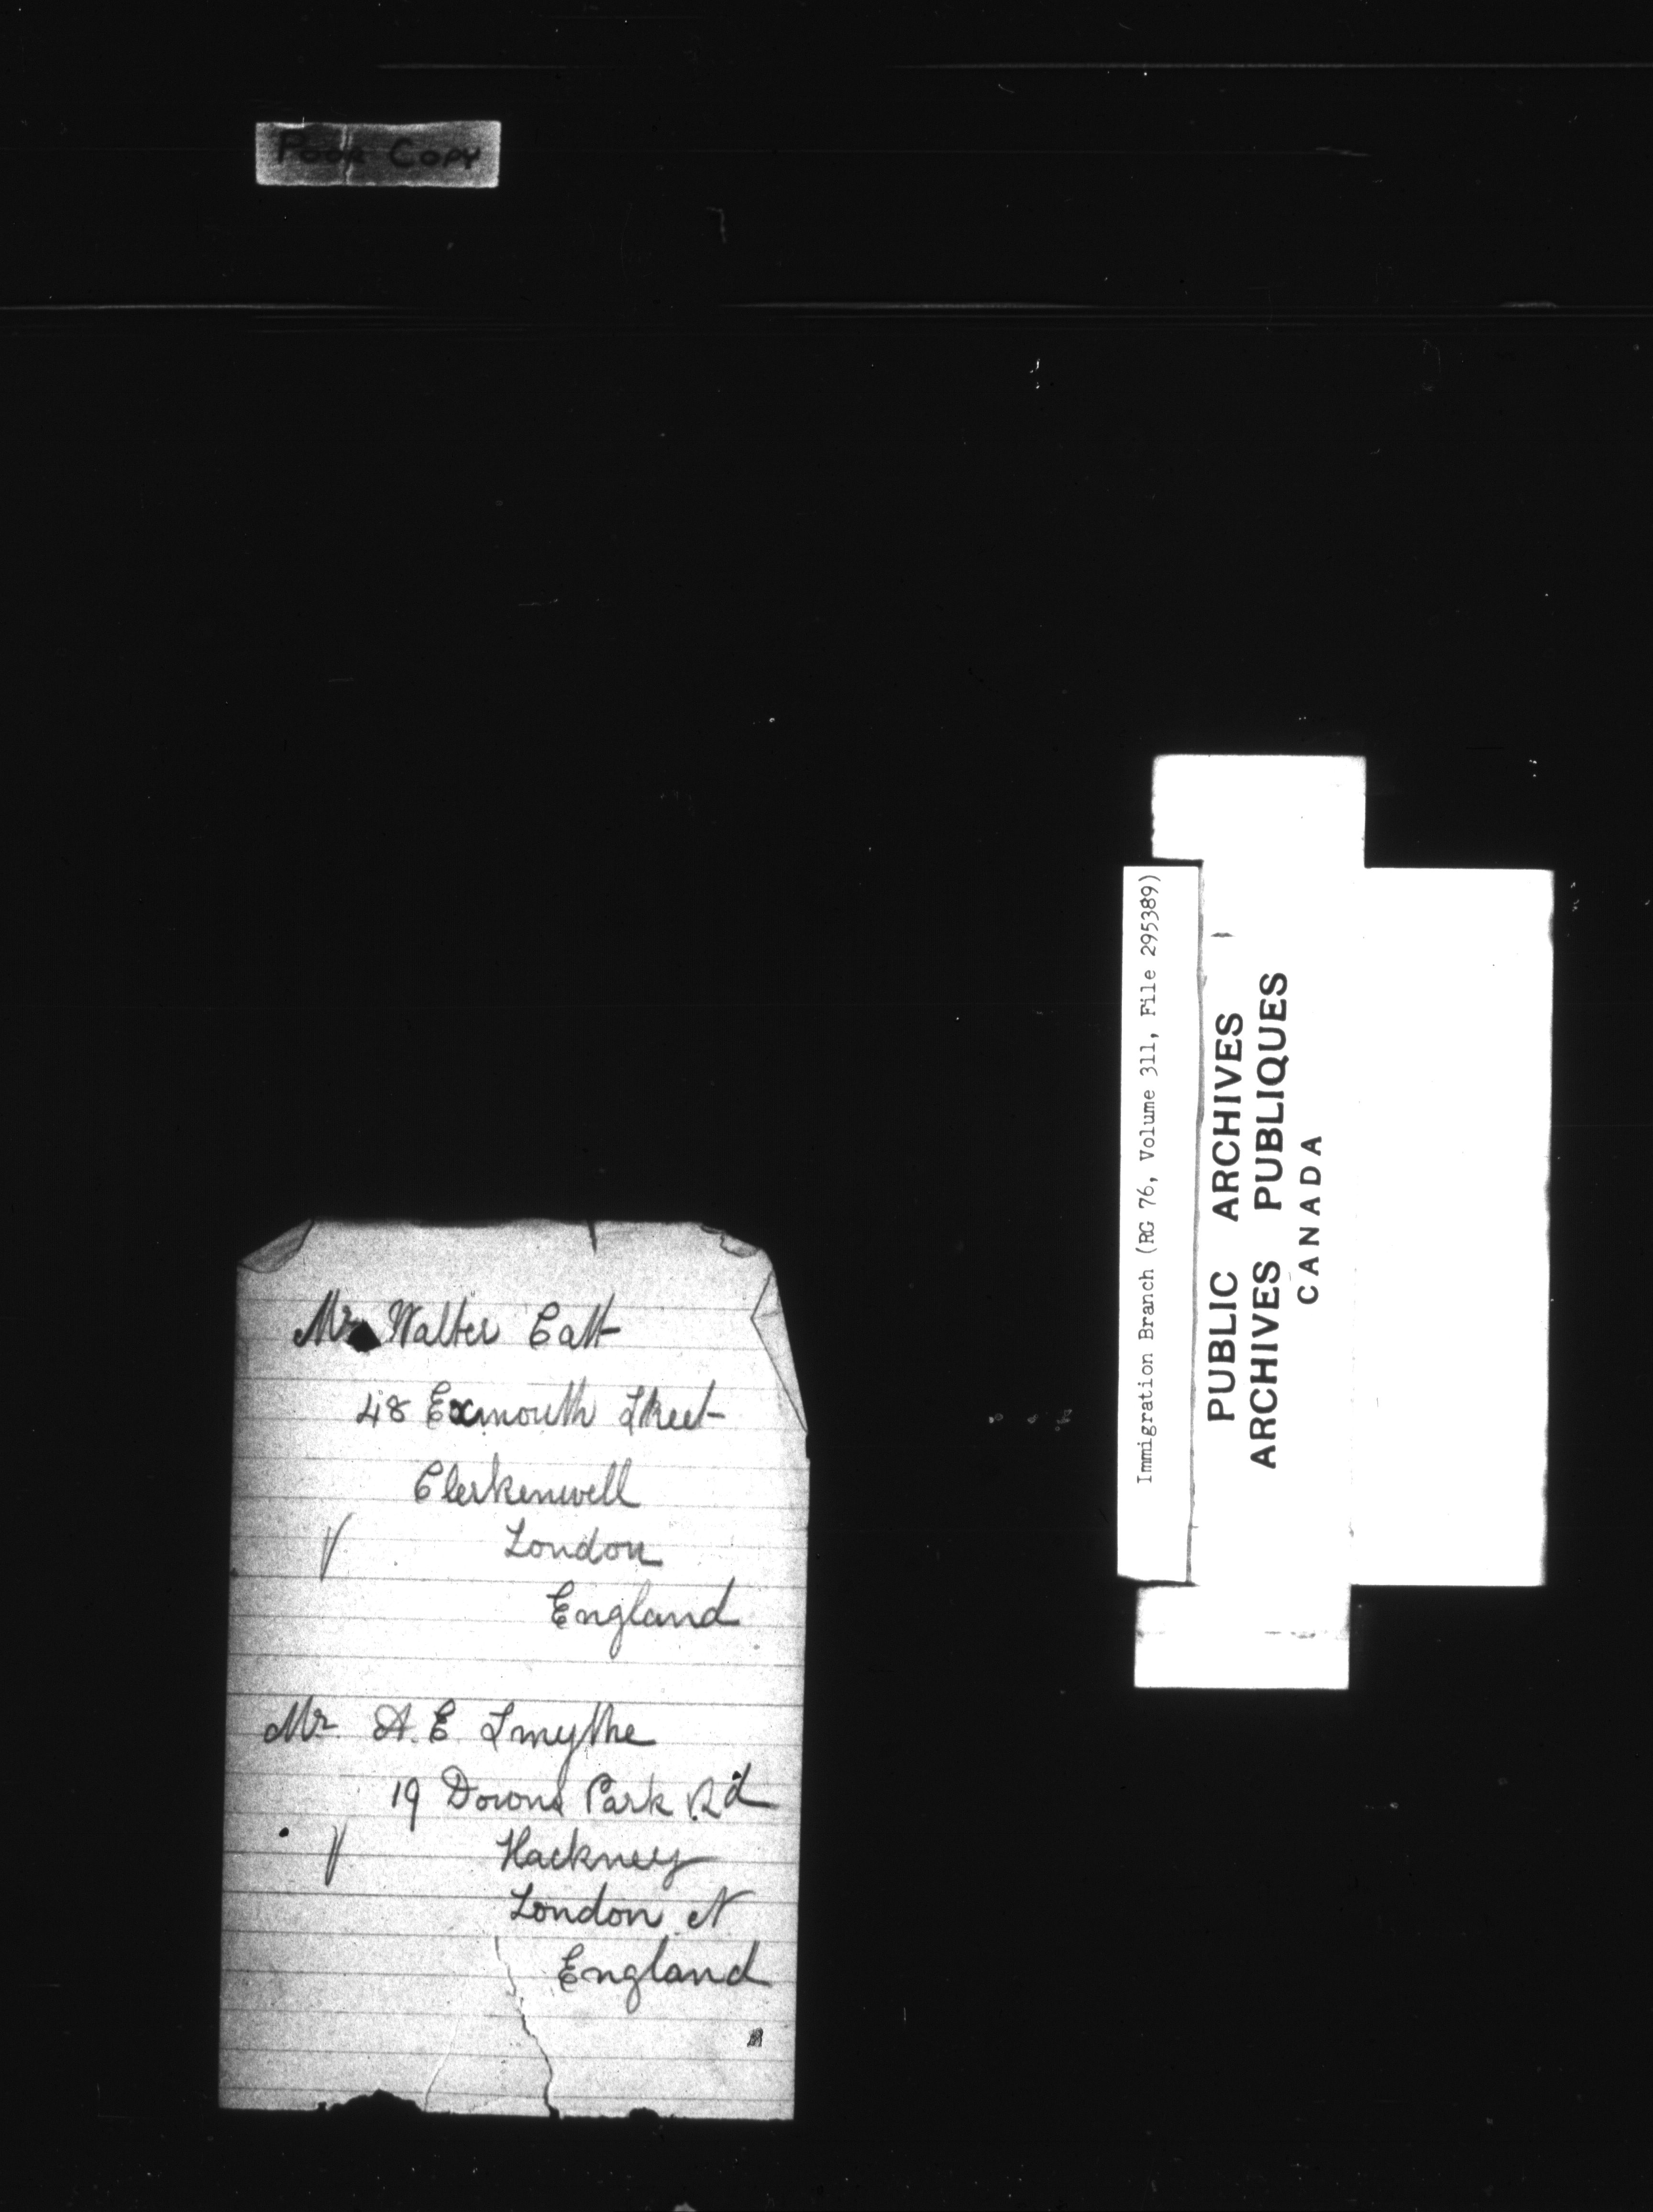 Poor Copy
Mr Walter Catt
48 Exmouth Street
Clerkenwell
London
England
Mr A. E. Smythe
19 Downs Park Rd
Hackney
London N
England
Immigration Branch (RG 76, Volume 311, File 295389)
PUBLIC ARCHIVES
ARCHIVES PUBLIQUES
CANADA